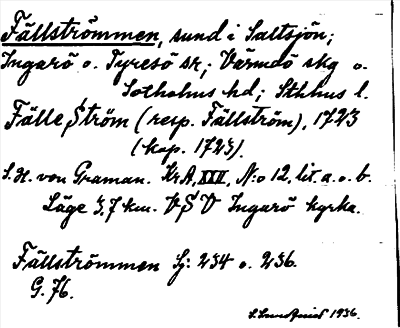 Fällströmmen, sund i Saltsjön;
Ingarö o. Tyresö sr; Värmdö skg o.
Sotholms hd; Sthlms l.
Fälle Ström (resp. Fällström), 1723
(kop. 1723).
S. H. von Graman. KrA, XXII, N:o 12, lit. a. o. b.
Läge 3,7 km. VSV Ingarö kyrka.
Fällströmmen Sj: 234 o. 236.
G. 76.
1936.